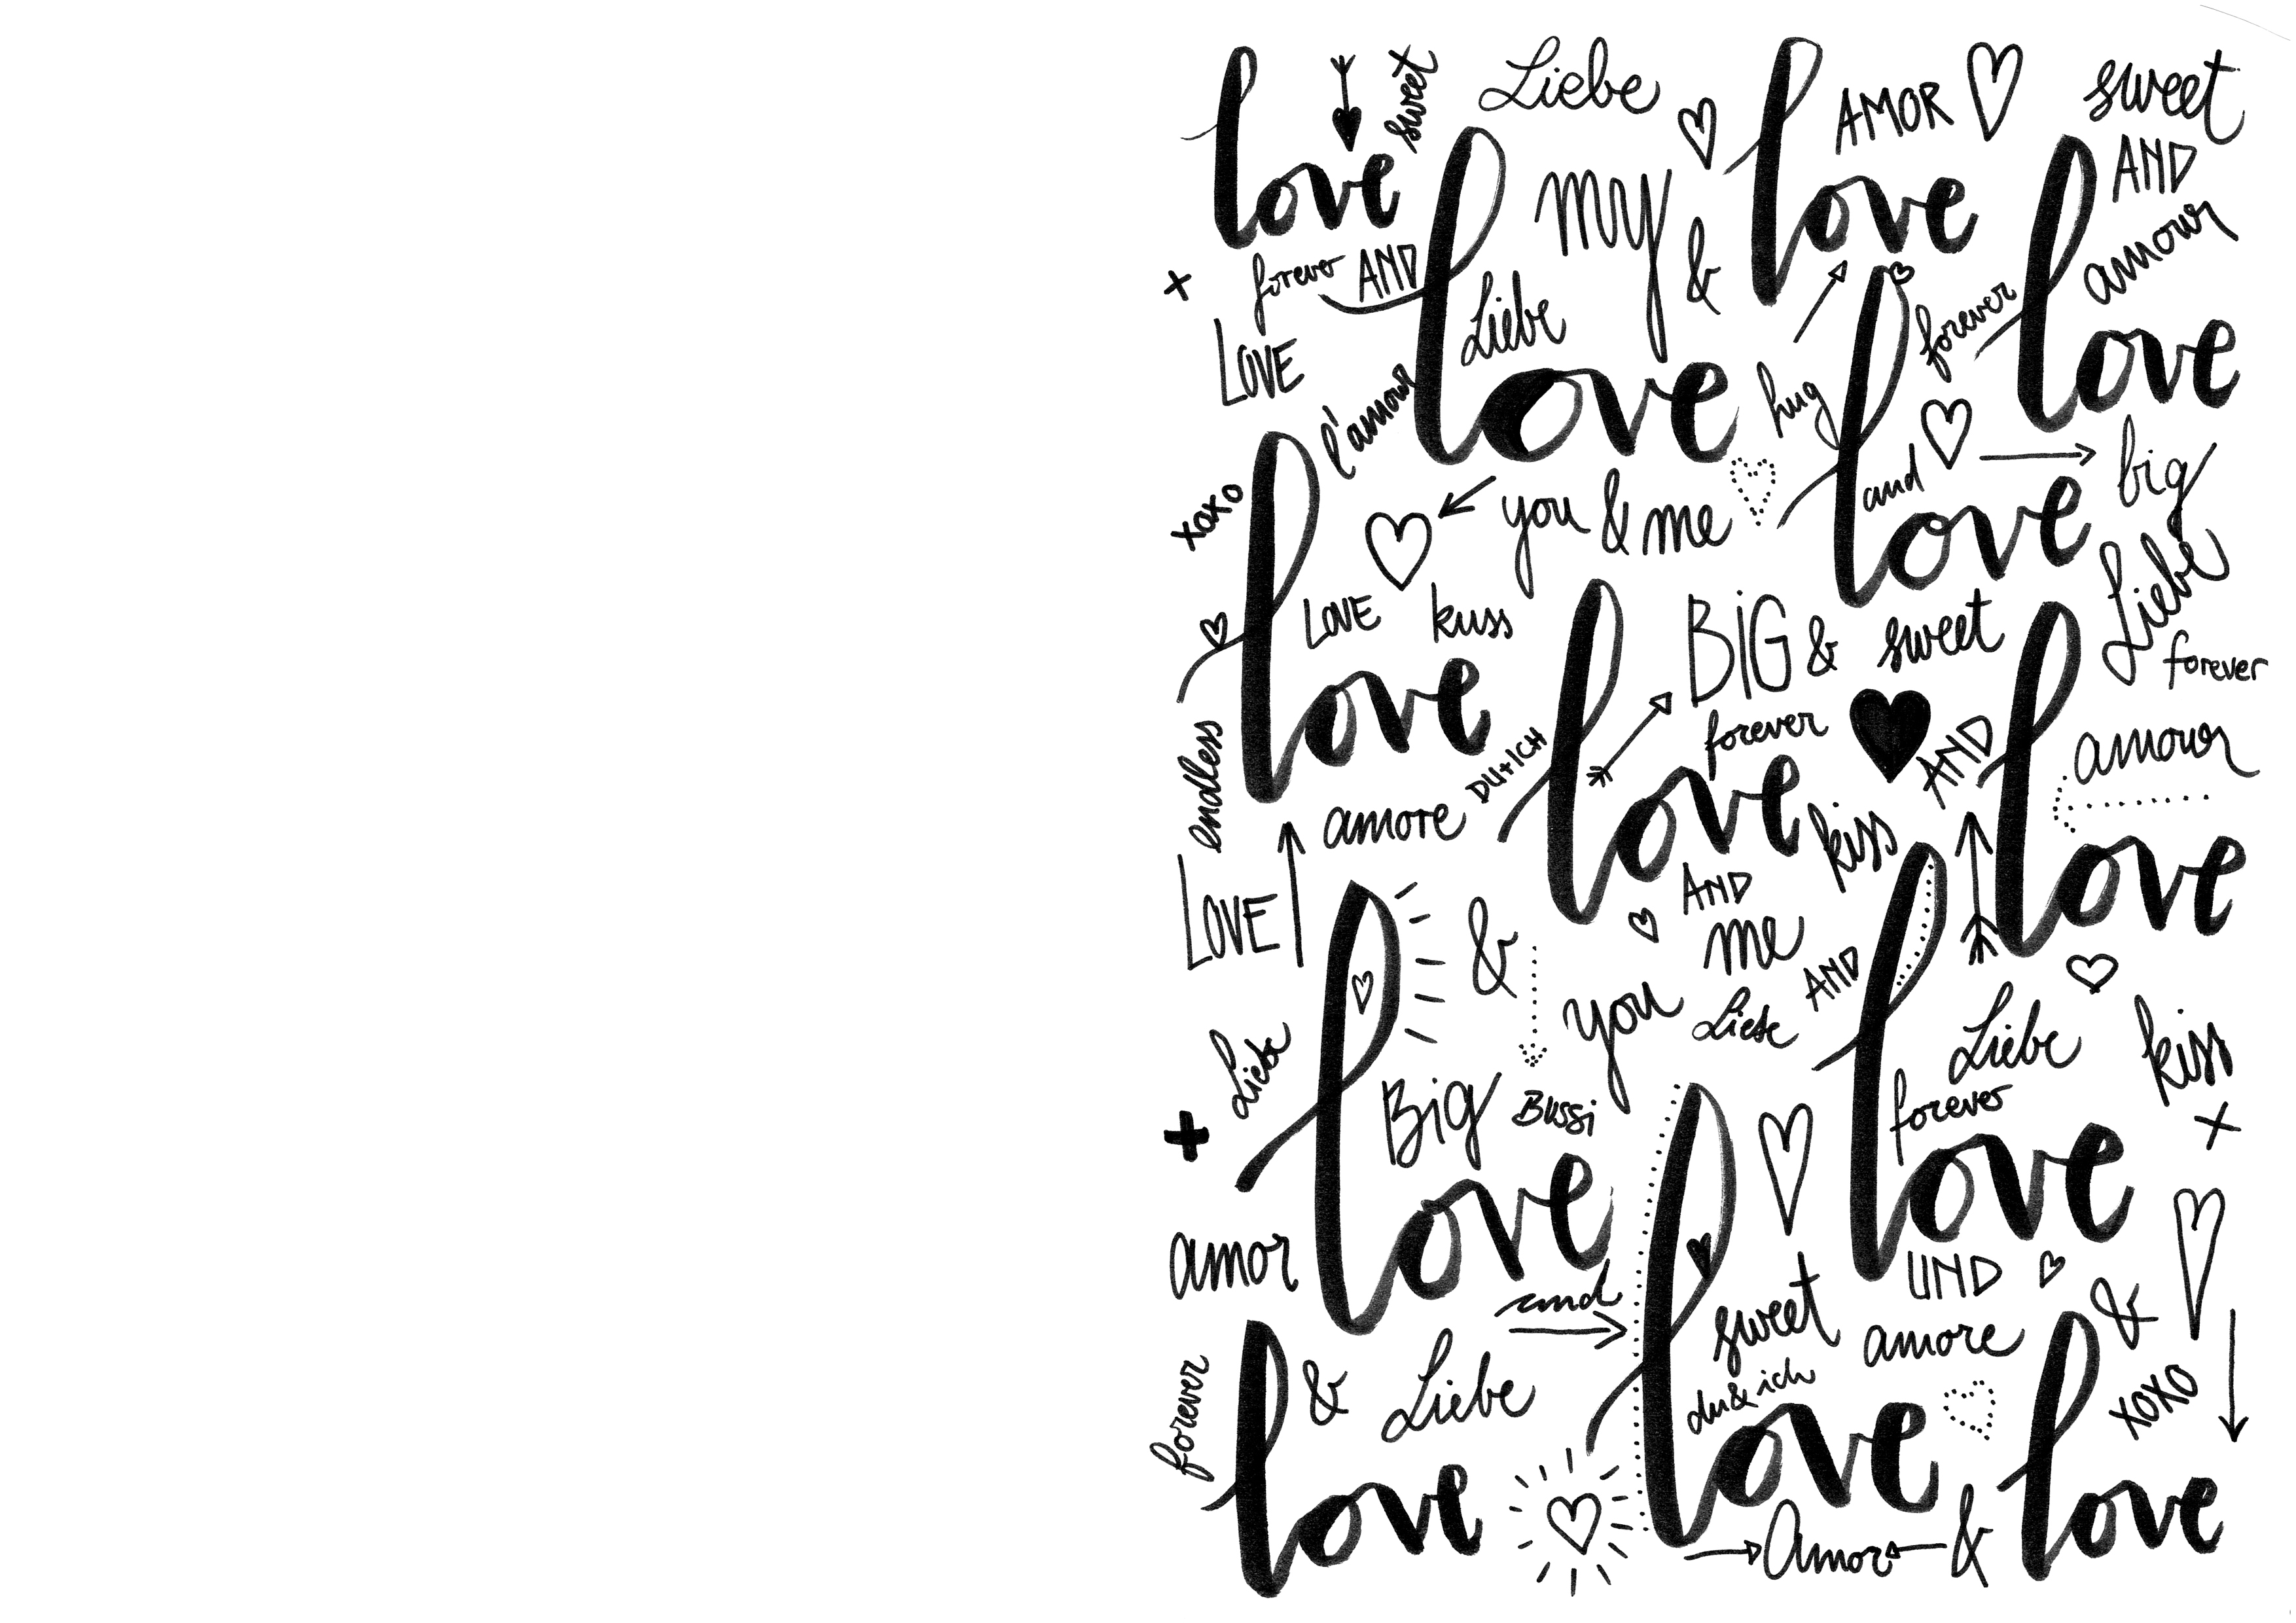 love
sweet
Liebe
AMOR
sweet
love
my
&
love
AND
amour
forever AND
Liebe
love
forever
love
LOVE
l'amour
hug
and
love
big
xoxo
you & me
Liebe
LOVE
kuss
love
BIG & sweet
forever
forever
endless
DU+ICH
love
AND
amour
amore
kiss
love
LOVE
&
AND
me
AND
you
Liebe
Liebe
Liebe
kiss
Big
Bussi
forever
love
love
amor
und
UND
&
sweet
amore
forever
&
Liebe
du & ich
love
xoxo
love
love
Amor
&